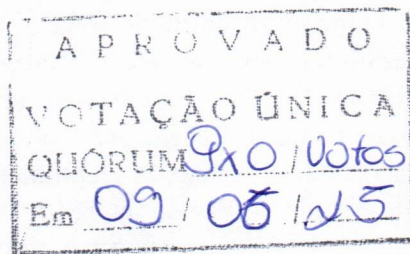 APROVADO
VOTAÇÃO ÚNICA
QUÓRUM 9x0 / Votos
Em 09 / 06 / 25